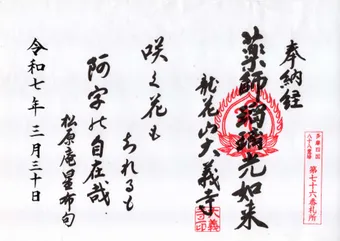 奉納経
薬師瑠璃光如来
龍花山大義寺
多摩四国
八十八霊場
第七十六番札所
咲く花も
おれるも
阿字の自在哉
松原庵星布句
令和七年三月三十日